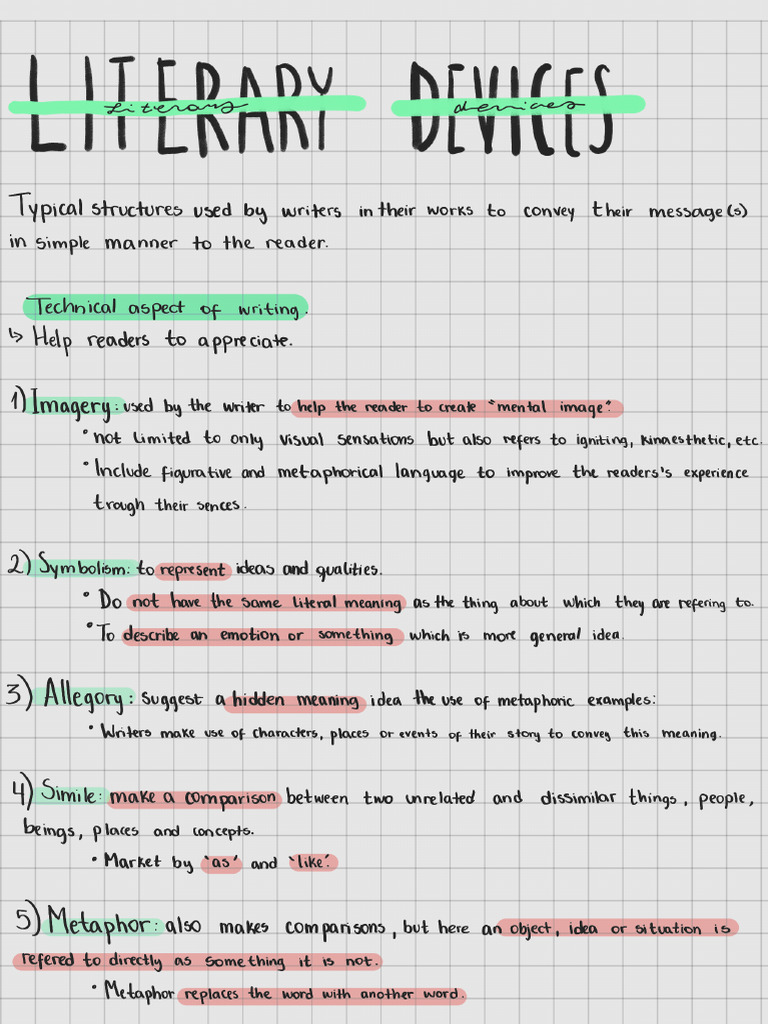 LITERARY DEVICES
Literary devices
Typical structures used by writers in their works to convey their message(s)
in simple manner to the reader.
Technical aspect of writing.
↳ Help readers to appreciate.
1) Imagery: used by the writer to help the reader to create "mental image".
• not limited to only visual sensations but also refers to igniting, kinaesthetic, etc.
• Include figurative and metaphorical language to improve the readers's experience
trough their sences.
2) Symbolism: to represent ideas and qualities.
• Do not have the same literal meaning as the thing about which they are refering to.
• To describe an emotion or something which is more general idea.
3) Allegory: suggest a hidden meaning idea the use of metaphoric examples:
• Writers make use of characters, places or events of their story to convey this meaning.
4) Simile: make a comparison between two unrelated and dissimilar things, people,
beings, places and concepts.
• Market by 'as' and 'like'.
5) Metaphor: also makes comparisons, but here an object, idea or situation is
refered to directly as something it is not.
• Metaphor replaces the word with another word.